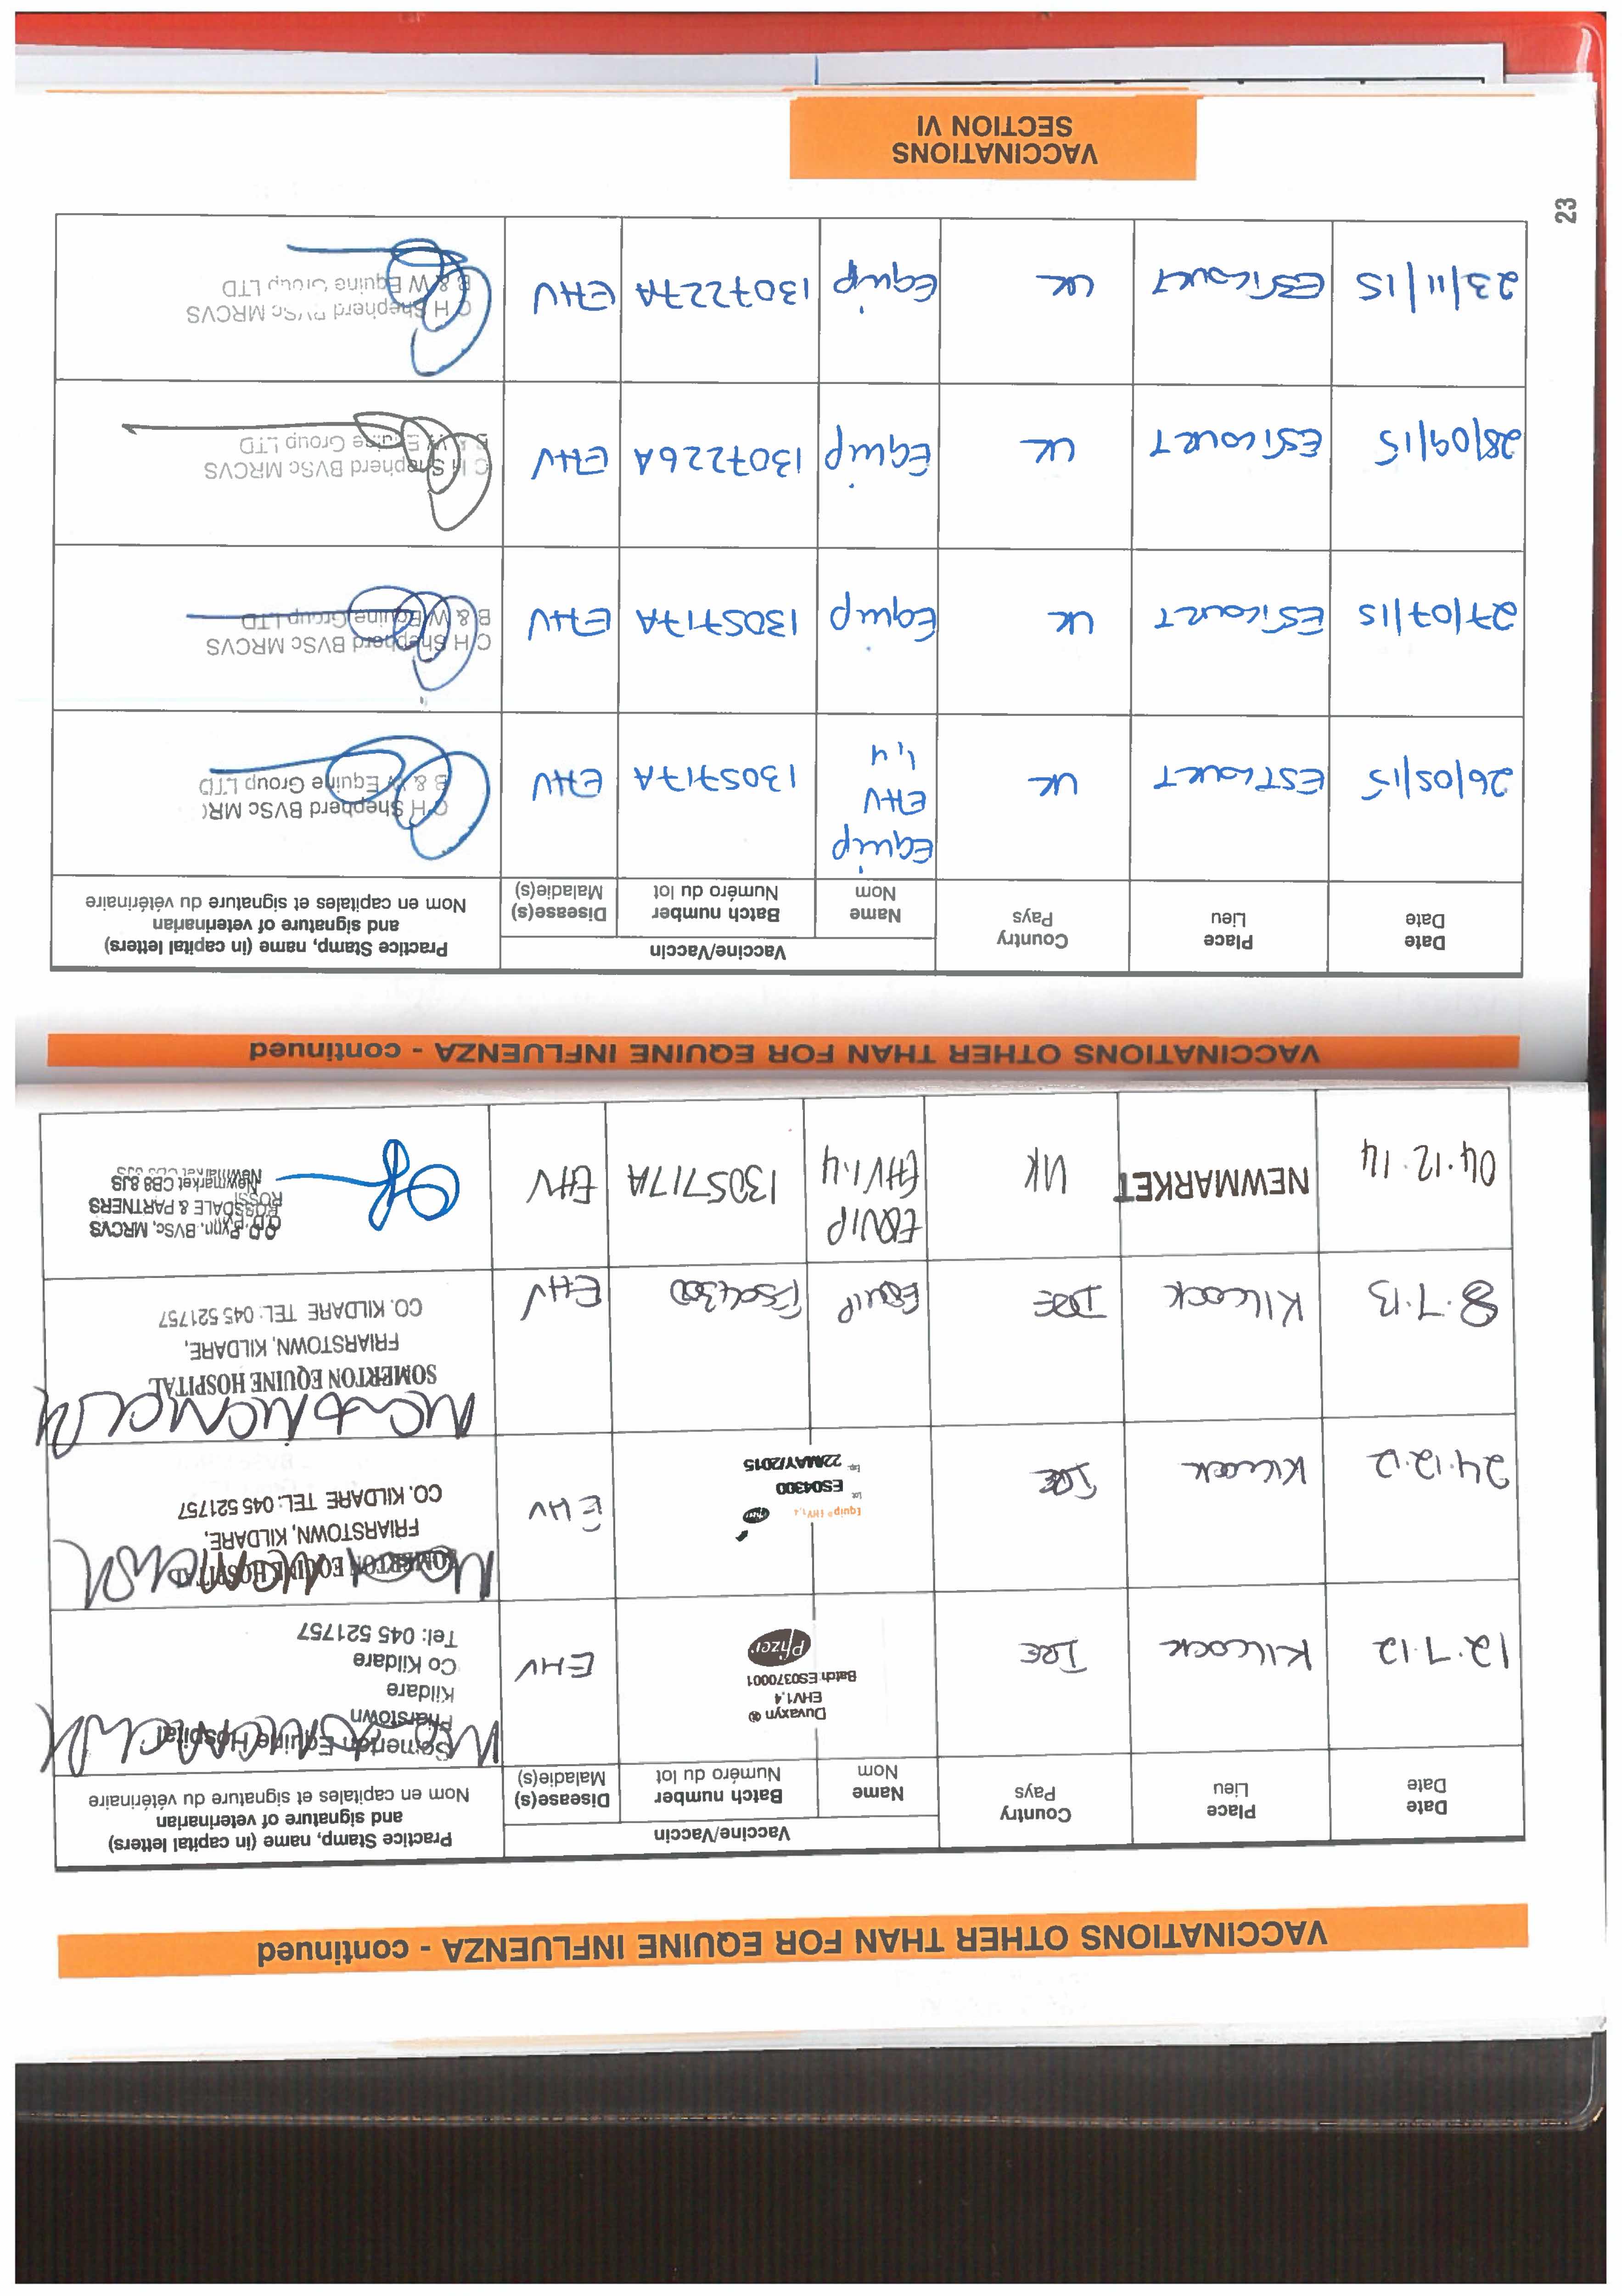 VACCINATIONS OTHER THAN FOR EQUINE INFLUENZA - continued
Date
Date
Place
Lieu
Country
Pays
Vaccine/Vaccin
Name
Nom
Batch number
Numéro du lot
Disease(s)
Maladie(s)
Practice Stamp, name (in capital letters)
and signature of veterinarian
Nom en capitales et signature du vétérinaire
12.7.12
Kilcock
IRE
Duvaxyn ®
EHV1,4
Batch: ES0370001
Pfizer
EHV
Somerton Equine Hospital
Friarstown
Kildare
Co Kildare
Tel: 045 521757
24.12.12
Kilcock
IRE
Equip® EHV 1,4
Lot
ES04300
Exp
22MAY/2015
EHV
SOMERTON EQUINE HOSPITAL
FRIARSTOWN, KILDARE,
CO. KILDARE TEL: 045 521757
8.7.13
Kilcock
IRE
EQUIP
ES04300
EHV
SOMERTON EQUINE HOSPITAL
FRIARSTOWN, KILDARE,
CO. KILDARE TEL: 045 521757
04.12.14
NEWMARKET
UK
EQUIP
EHV1.4
1305717A
EHV
BVSc, MRCVS
ROSSDALE & PARTNERS
Newmarket CB8 8JS
VACCINATIONS OTHER THAN FOR EQUINE INFLUENZA - continued
Date
Date
Place
Lieu
Country
Pays
Vaccine/Vaccin
Name
Nom
Batch number
Numéro du lot
Disease(s)
Maladie(s)
Practice Stamp, name (in capital letters)
and signature of veterinarian
Nom en capitales et signature du vétérinaire
26/05/15
ESTCOURT
UK
Equip
EHV
1,4
1305717A
EHV
C H Shepherd BVSc MRC
B & W Equine Group LTD
27/07/15
ESTCOURT
UK
Equip
1305717A
EHV
C H Shepherd BVSc MRCVS
B & W Equine Group LTD
28/09/15
ESTCOURT
UK
Equip
1307226A
EHV
C H Shepherd BVSc MRCVS
B & W Equine Group LTD
23/11/15
ESTCOURT
UK
Equip
1307227A
EHV
C H Shepherd BVSc MRCVS
B & W Equine Group LTD
VACCINATIONS
SECTION VI
23